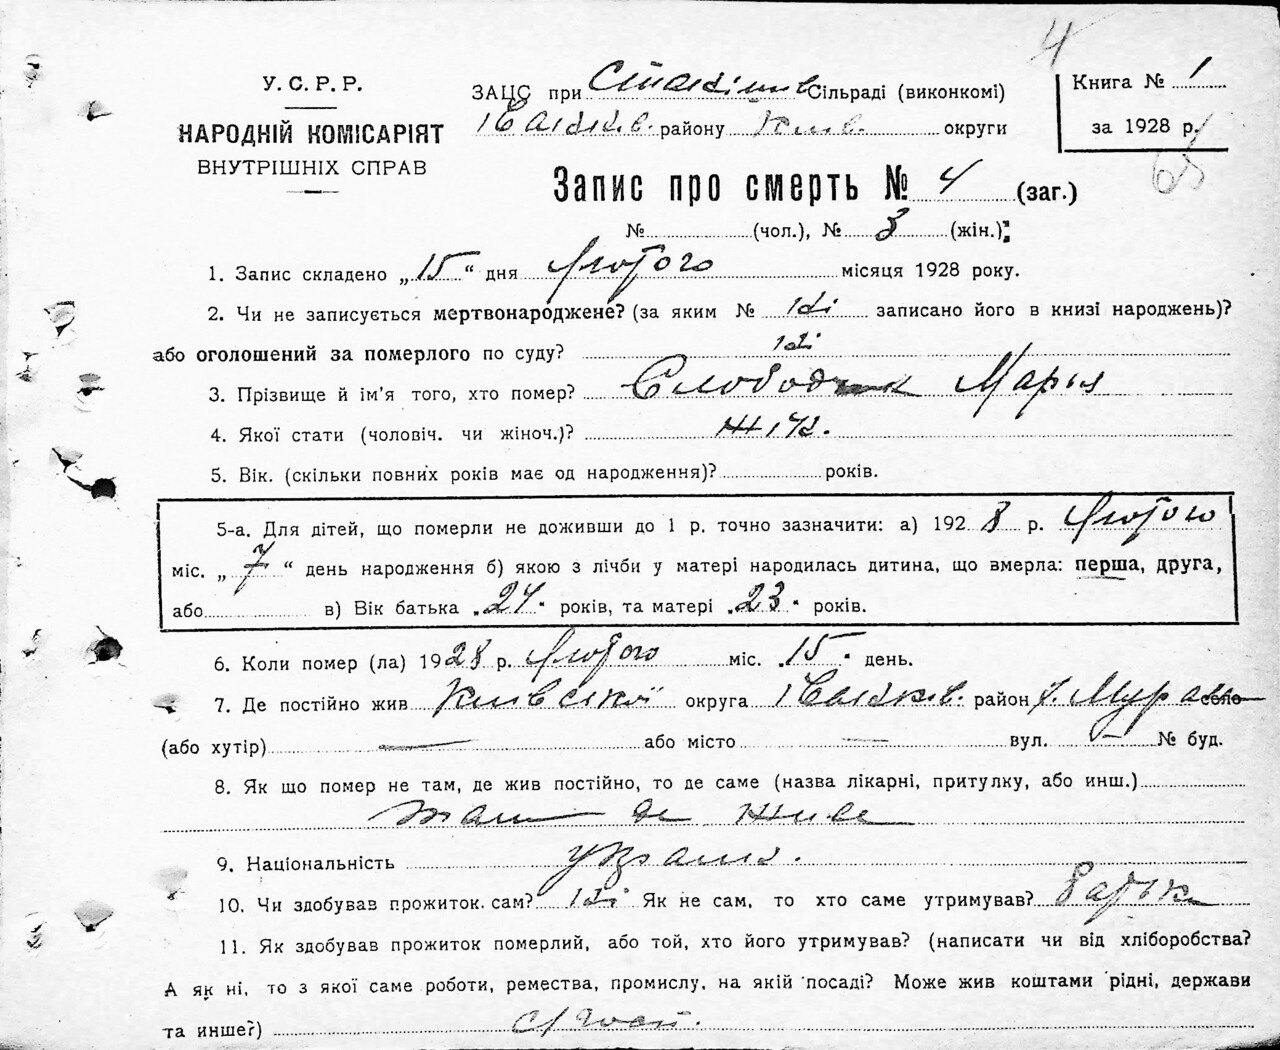 4
У. С. Р. Р.
НАРОДНІЙ КОМІСАРІЯТ
ВНУТРІШНІХ СПРАВ
ЗАЦС при Сільраді (виконкомі)
району Київ. округи
Книга № 1
за 1928 р.
65
Запис про смерть № 4 (заг.)
№ (чол.), № 3 (жін.);
1. Запис складено „ 15 “ дня Лютого місяця 1928 року.
2. Чи не записується мертвонароджене? (за яким № Ні записано його в книзі народжень)?
або оголошений за померлого по суду? Ні
3. Прізвище й ім'я того, хто помер? Слободяник Марія
4. Якої стати (чоловіч. чи жіноч.)? жін.
5. Вік. (скільки повних років має од народження)? років.
5-а. Для дітей, що померли не доживши до 1 р. точно зазначити: а) 192 8 р. Лютого
міс. „ 7 “ день народження б) якою з лічби у матері народилась дитина, що вмерла: перша, друга,
або в) Вік батька 24 років, та матері 23 років.
6. Коли помер (ла) 1928 р. Лютого міс. 15 день.
7. Де постійно жив Київської округа район село
(або хутір) — або місто — вул. — № буд.
8. Як що помер не там, де жив постійно, то де саме (назва лікарні, притулку, або инш.)
там де живе
9. Національність україн.
10. Чи здобував прожиток сам? Ні Як не сам, то хто саме утримував? батько
11. Як здобував прожиток померлий, або той, хто його утримував? (написати чи від хліборобства?
А як ні, то з якої саме роботи, ремества, промислу, на якій посаді? Може жив коштами рідні, держави
та инше?) с/госп.